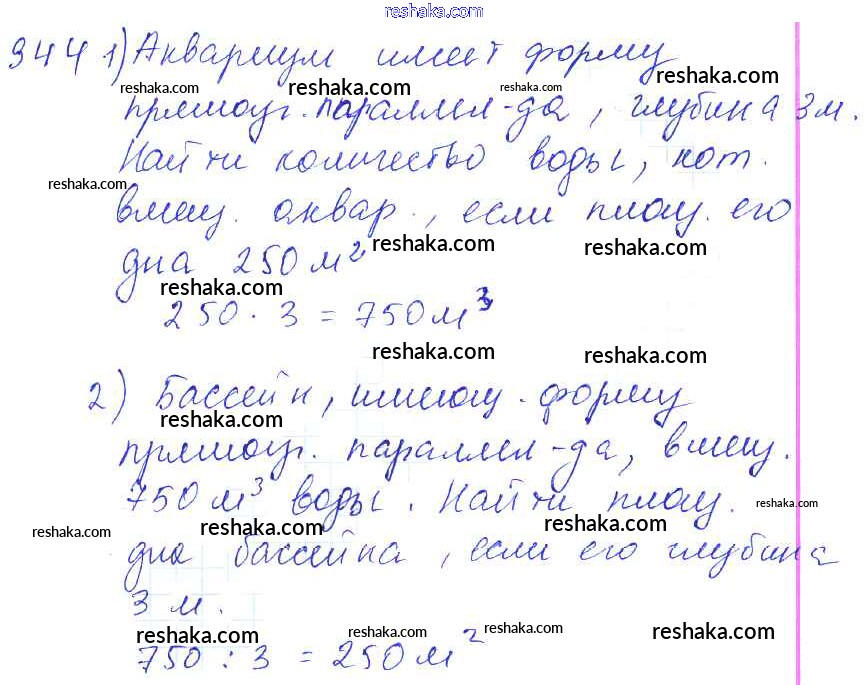 reshaka.com
944 1) Аквариум имеет форму
reshaka.com reshaka.com reshaka.com reshaka.com
прямоуг. параллел-да, глубина 3 м.
reshaka.com reshaka.com reshaka.com
Найти количество воды, кот.
reshaka.com
вмещ. аквар., если площ. его
reshaka.com reshaka.com
дна 250 м²
reshaka.com
250 · 3 = 750 м³
reshaka.com reshaka.com
2) Бассейн, имеющ. форму
reshaka.com
прямоуг. параллел-да, вмещ.
750 м³ воды. Найти площ.
reshaka.com reshaka.com reshaka.com reshaka.com
дна бассейна, если его глубина
3 м.
reshaka.com reshaka.com reshaka.com reshaka.com
750 : 3 = 250 м²